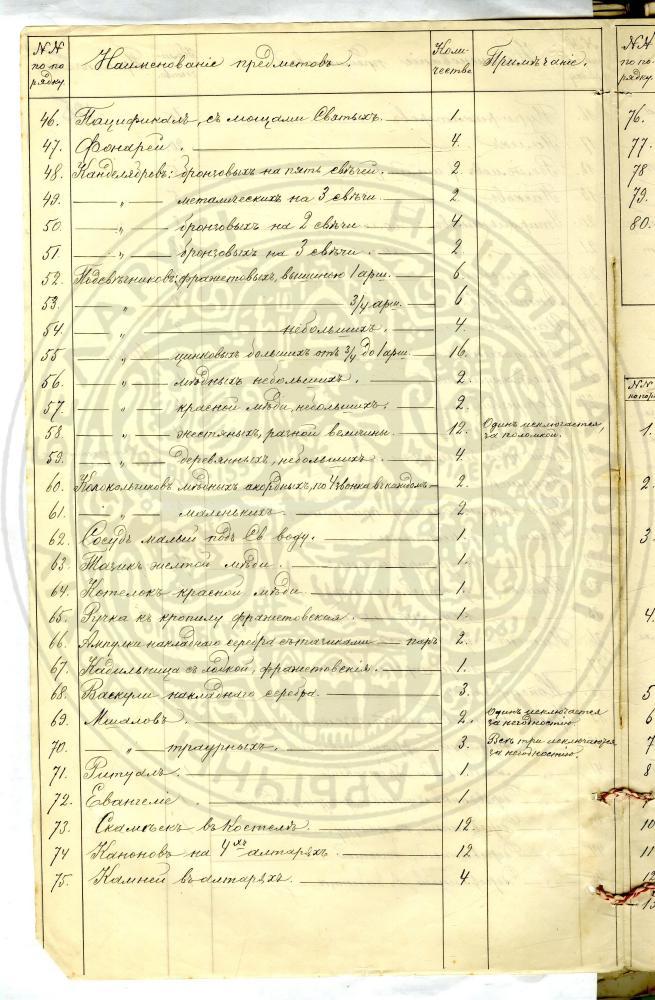 NN по по рядку. Наименованіе предметовъ. Коли- чество Примѣчаніе.
46. Пацификалъ, съ мощами Святыхъ. 1.
47. Фонарей. 4.
48. Канделябровъ: бронзовыхъ на пять свѣчей. 2
49. „ металическихъ на 3 свѣчи 2
50. „ бронзовыхъ на 2 свѣчи 4
51. „ бронзовыхъ на 3 свѣчи. 2.
52. Подсвѣчниковъ: фражетовыхъ, вышиною 1 арш. 6.
53. „ 3/4 арш. 6
54. „ небольшихъ. 4.
55 „ цинковыхъ большихъ отъ 3/4 до 1 арш. 16.
56. „ мѣдныхъ небольшихъ. 2.
57. „ красной мѣди, небольшихъ. 2.
58. „ жестяныхъ, разной величины. 12. Одинъ исключается, за поломкой.
59. „ деревянныхъ, небольшихъ. 4.
60. Колокольчиковъ мѣдныхъ акордныхъ, по 4 звонка въ каждомъ 2.
61. „ маленькихъ. 2
62. Сосудъ малый подъ Св. воду. 1.
63. Тазикъ желтой мѣди. 1.
64. Котелокъ красной мѣди. 1.
65. Ручка къ кропилу фражетовская. 1.
66. Ампулки накладнаго серебра съ тачиками паръ 2.
67. Кадильница съ лодкой, фражетовскія. 1.
68. Васкули накладнаго серебра. 3.
69. Мшаловъ. 2. Одинъ исключается за негодностію.
70. „ траурныхъ. 3. Всѣ три исключаются за негодностію.
71. Ритуалъ. 1.
72. Евангеліе. 1
73. Скамѣекъ въ Костелѣ. 12.
74 Каноновъ на 4хъ алтаряхъ. 12
75. Камней въ алтаряхъ. 4.
NN по по рядку.
76.
77.
78
79.
80.
NN по пор
1.
2.
3.
4.
5
6
7
8
10
11
12
13